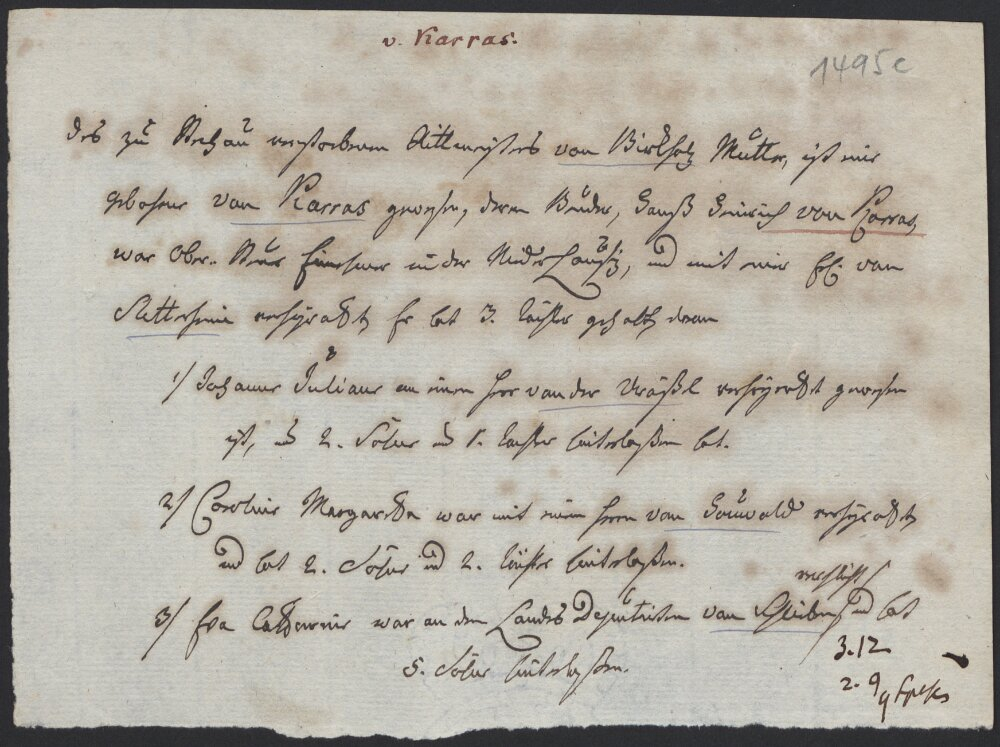 v. Karras.
1495c
des zu Stechau verstorbenen Rittmeisters von Birkholz Mutter, ist eine
gebohrne von Karras gewesen, deren Bruder, Hanß Heinrich von Carras,
war Ober-Steuer Einehmer in der Nieder Lausitz, und mit einer Frl. von
verheyrathet. Er hat 3. Töchter gehabt, davon
1/ Johanne Juliane an einen Herr van der verheyrathet gewesen
ist, u 2. Söhne u 1. Tochter hinterlaßen hat.
2/ Caroline Margaretha war mit einem Herrn von Houwald verheyrathet
und hat 2. Söhne und 2. Töchter hinterlaßen.
verehlicht
3/ Eva Catharine war an den Landes Deputirten von und hat
5. Söhne hinterlaßen.
3.12
2. 9